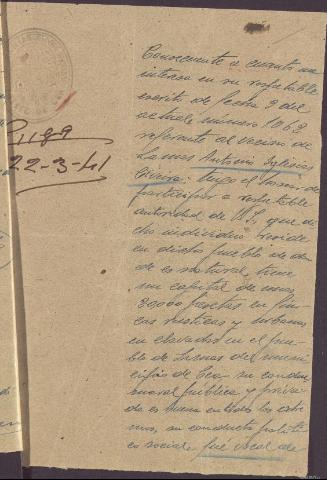 Consecuente a cuanto me
interesa en su respetable
escrito de fecha 9 del
actual número 1.062
referente al vecino de
Lamas Antonio Iglesias
tengo el honor de
participar a respetable
autoridad de V.S. que di-
cho individuo reside
en dicho pueblo de don-
de es natural, tiene
un capital de unos
30000 pesetas en fin-
cas rusticas y urbanas
en clavadas en el pue-
blo de Lamas del muni-
cipio de su conduc
moral pública y priva-
da es buena en todos los extre-
mos, su conducta politi
co social, fué vocal de
1189
22-3-41